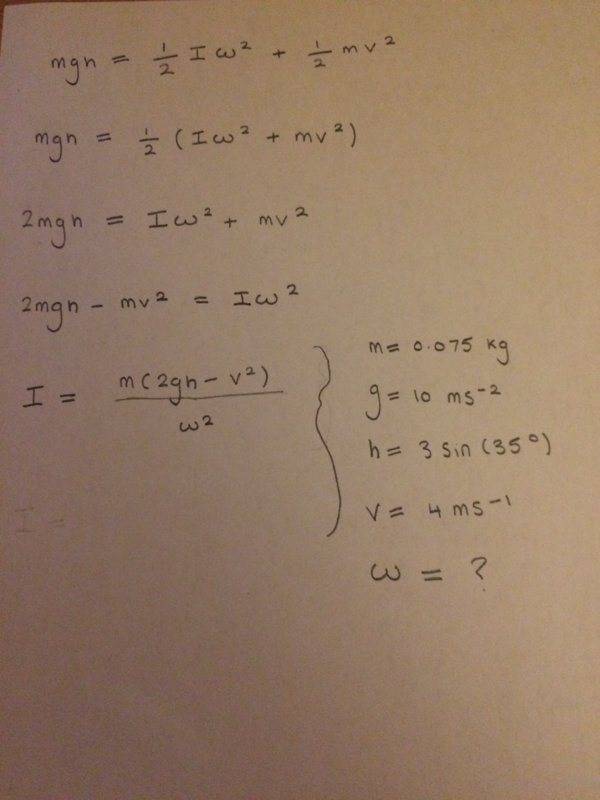 mgh = 1/2 Iω² + 1/2 mv²
mgh = 1/2 (Iω² + mv²)
2mgh = Iω² + mv²
2mgh - mv² = Iω²
I = m(2gh - v²) / ω²
m = 0.075 kg
g = 10 ms⁻²
h = 3 sin (35°)
v = 4 ms⁻¹
ω = ?
I =